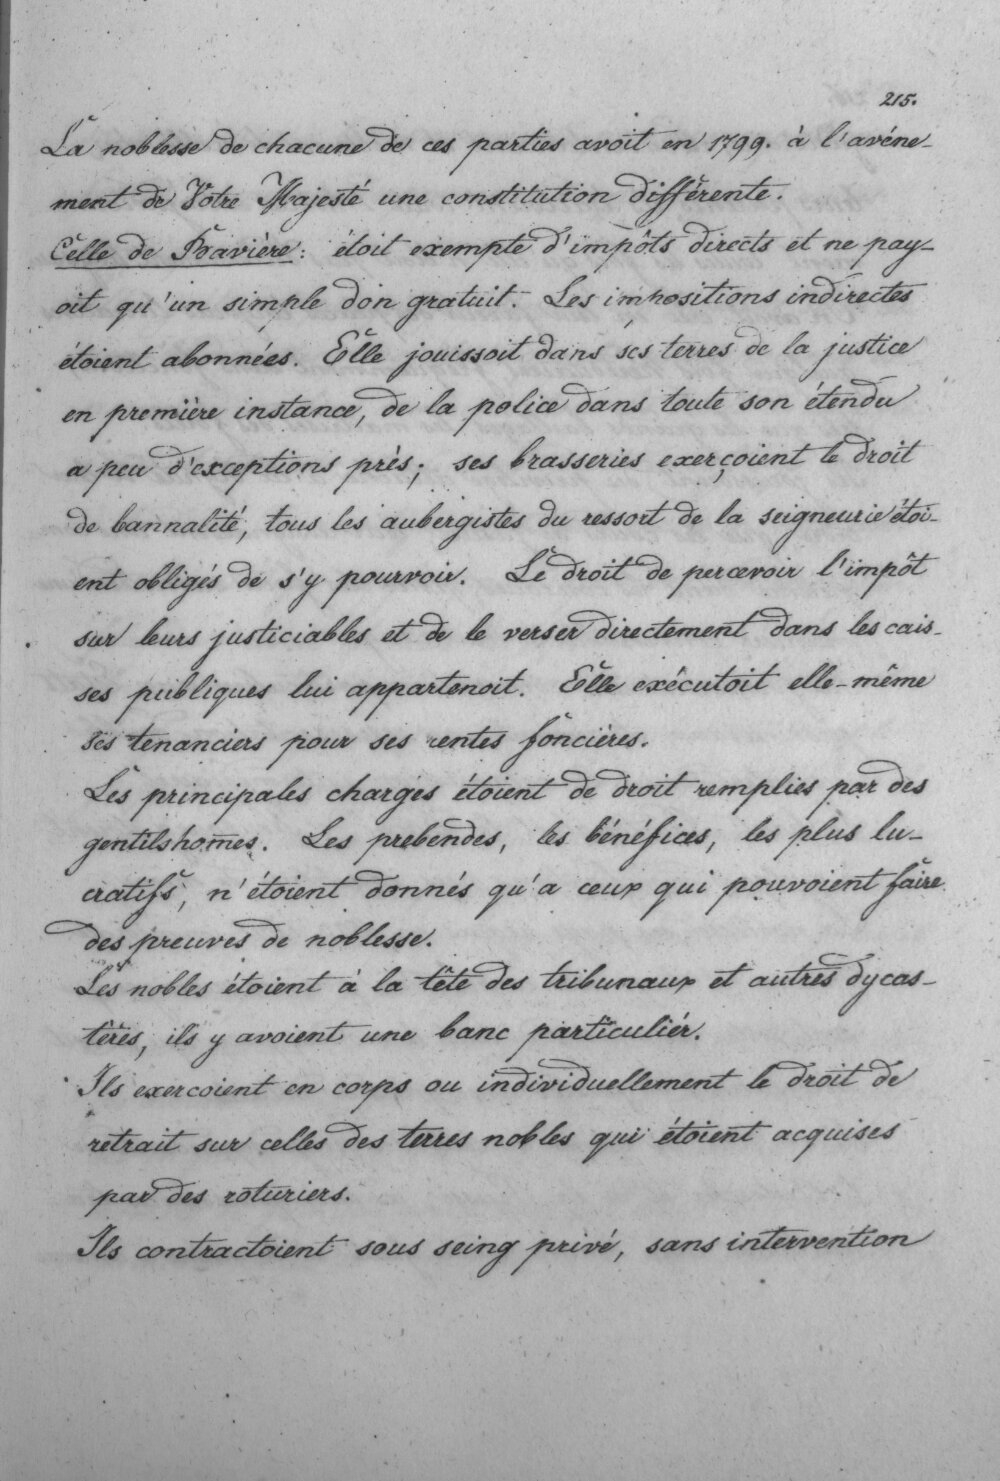 215.
La noblesse de chacune de ces parties avoit en 1799. à l'avéne-
ment de Votre Majesté une constitution différente.
Celle de Bavière: étoit exempte d'impôts directs et ne pay-
oit qu'un simple don gratuit. Les impositions indirectes
étoient abonnées. Elle jouissoit dans ses terres de la justice
en première instance, de la police dans toute son étendu
a peu d'exceptions près; ses brasseries exerçoient le droit
de bannalité, tous les aubergistes du ressort de la seigneurie étoi-
ent obligés de s'y pourvoir. Le droit de percevoir l'impôt
sur leurs justiciables et de le verser directement dans les cais-
ses publiques lui appartenoit. Elle exécutoit elle-même
ses tenanciers pour ses rentes foncières.
Les principales charges étoient de droit remplies par des
gentilshom̄es. Les prebendes, les bénéfices, les plus lu-
cratifs, n'étoient donnés qu'a ceux qui pouvoient faire
des preuves de noblesse.
Les nobles étoient à la tête des tribunaux et autres dycas-
tères, ils y avoient une banc particuliér.
Ils exercoient en corps ou individuellement le droit de
retrait sur celles des terres nobles qui étoient acquises
par des roturiers.
Ils contractoient sous seing privé, sans intervention